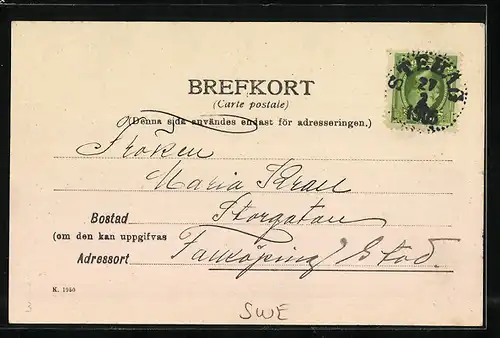 BREFKORT
(Carte postale)
(Denna sida användes endast för adresseringen.)
STEHAG
27
Fröken
Maria Krall
Bostad Storgatan
(om den kan uppgifvas
Adressort Falköping Stad.
K. 1950
SWE